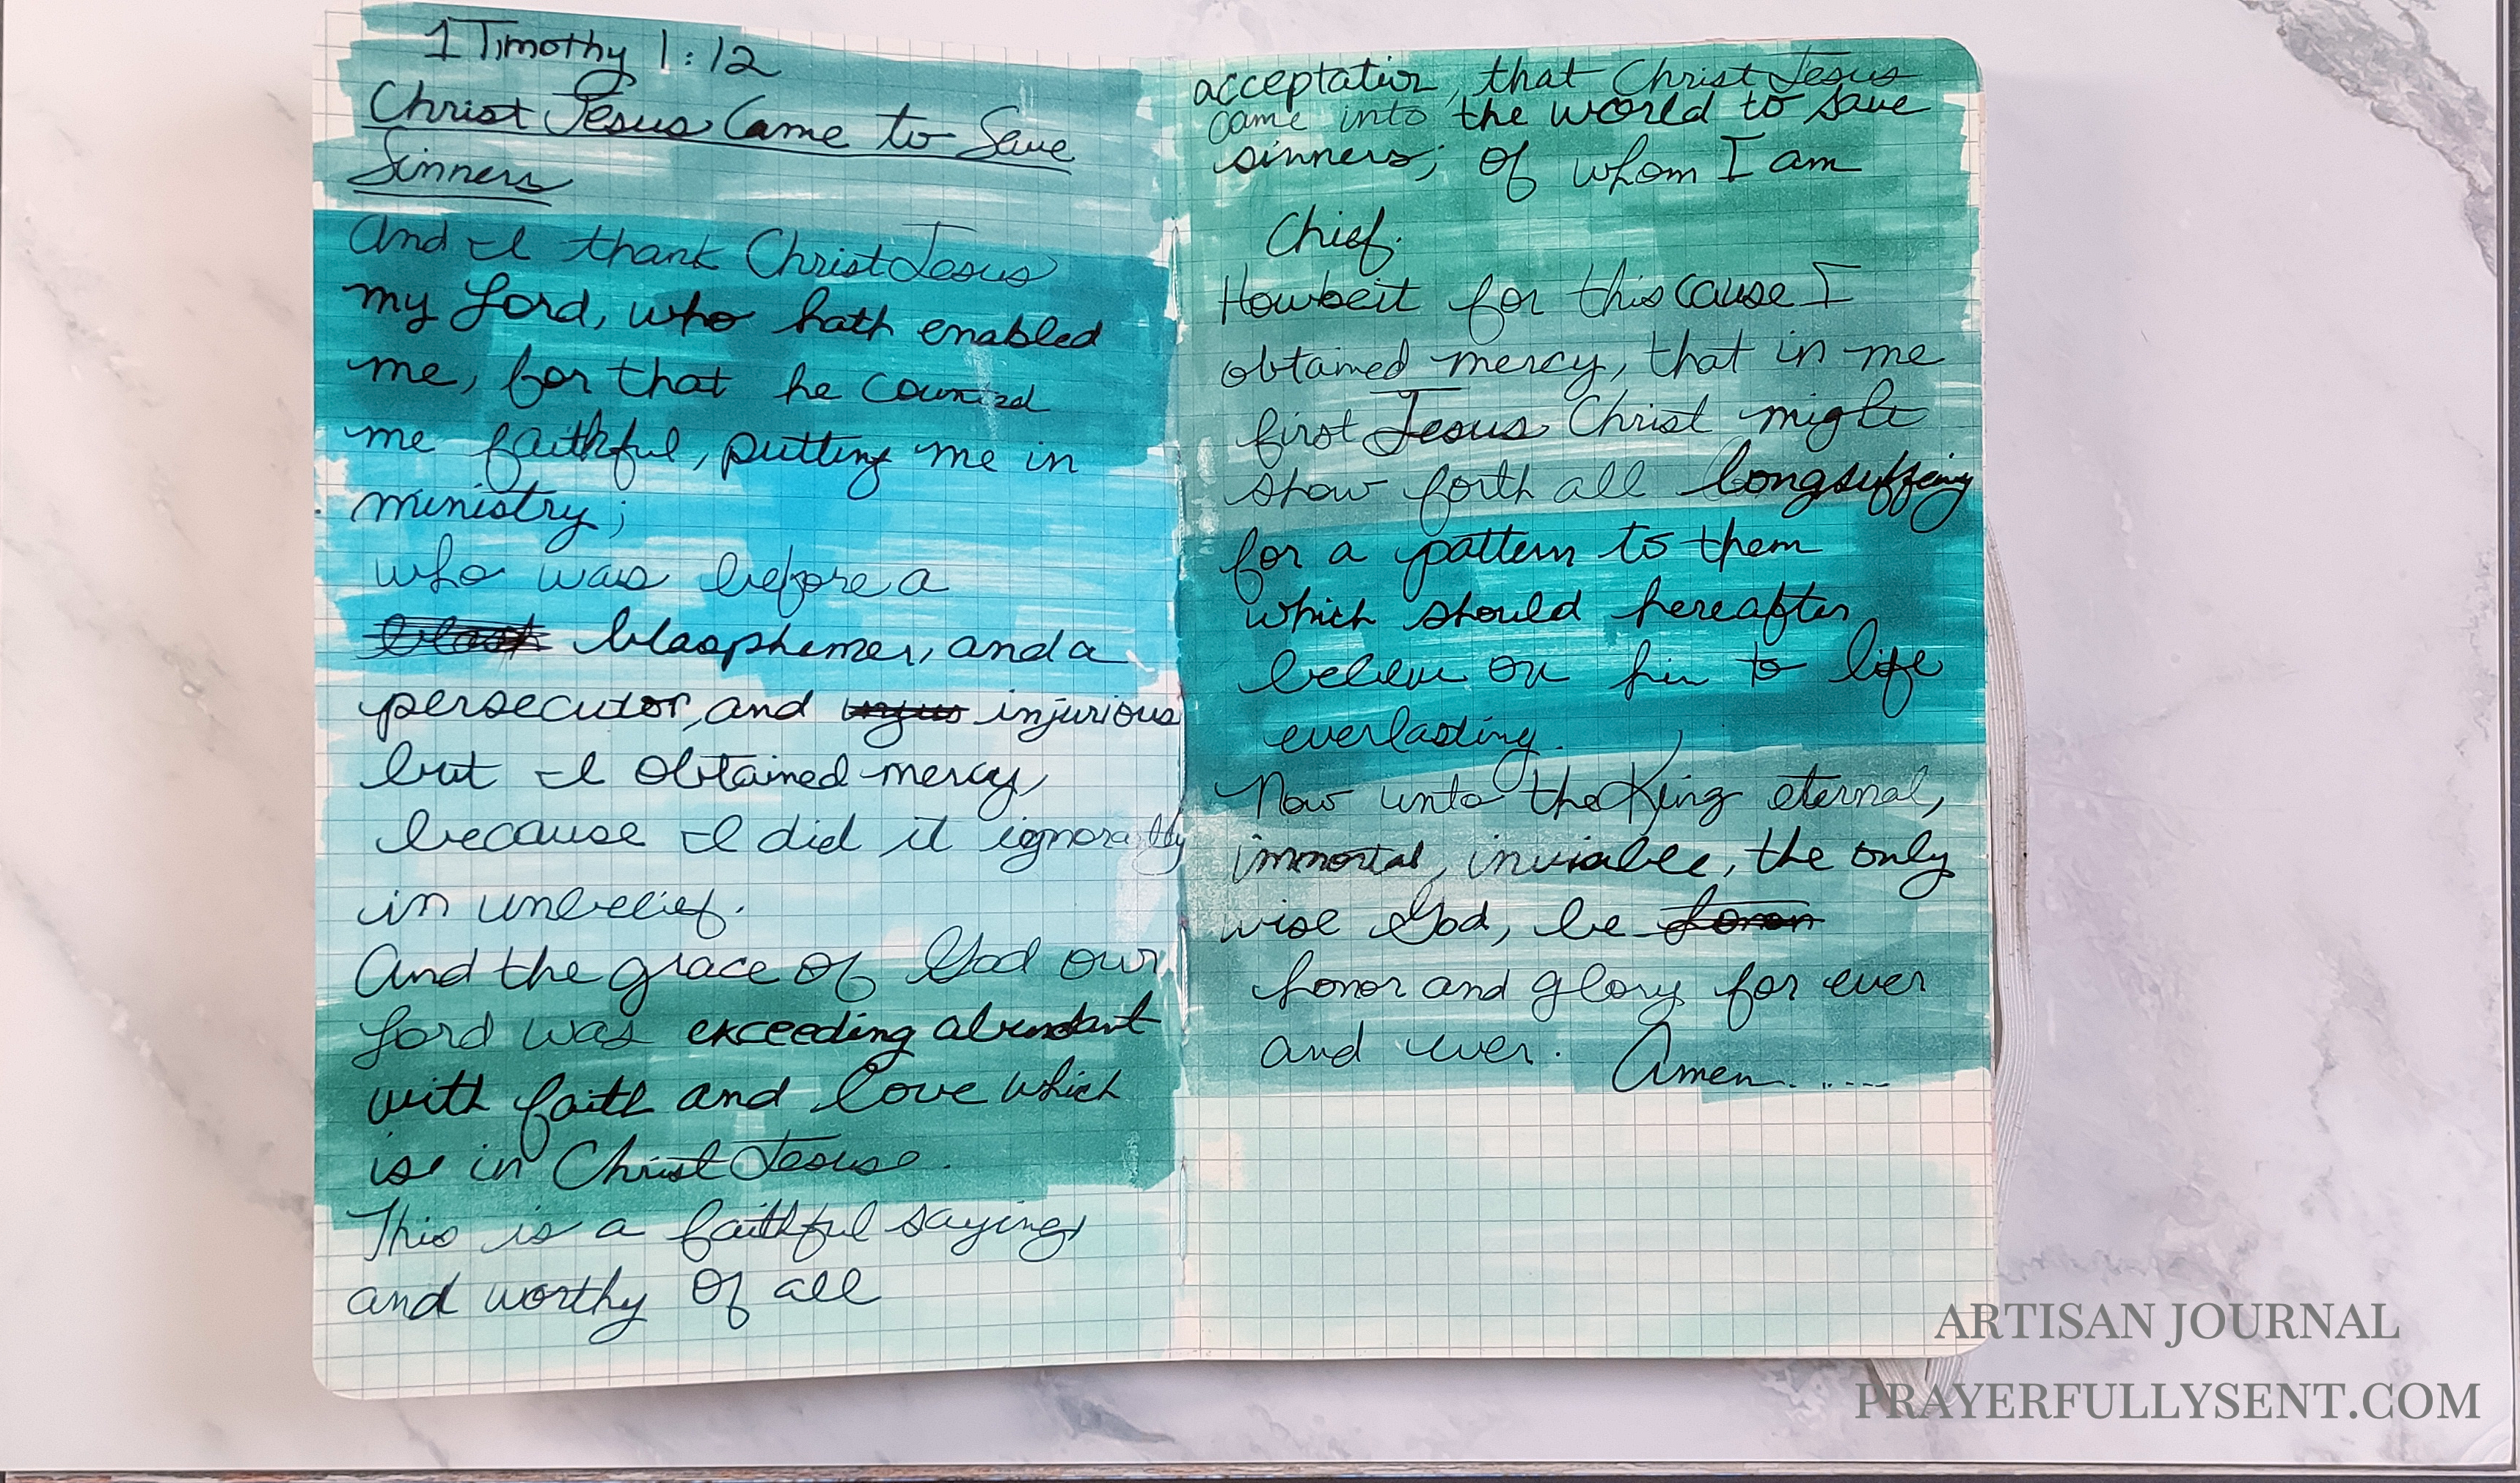 1 Timothy 1:12
Christ Jesus Came to Save
Sinners
And I thank Christ Jesus
my Lord, who hath enabled
me, for that he counted
me faithful, putting me in
ministry;
who was before a
blasphemer, and a
persecutor, and injurious
but I obtained mercy,
because I did it ignorantly
in unbelief.
And the grace of God our
Lord was exceeding abundant
with faith and love which
is in Christ Jesus.
This is a faithful saying,
and worthy of all
acceptation, that Christ Jesus
came into the world to save
sinners; of whom I am
Chief.
Howbeit for this cause I
obtained mercy, that in me
first Jesus Christ might
show forth all longsuffering
for a pattern to them
which should hereafter
believe on him to life
everlasting.
Now unto the King eternal,
immortal, invisible, the only
wise God, be
honor and glory for ever
and ever. Amen......
ARTISAN JOURNAL
PRAYERFULLYSENT.COM